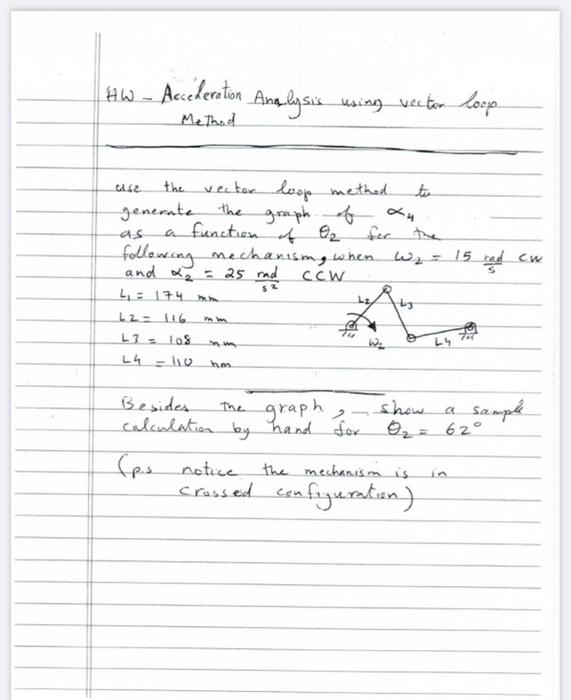 HW - Acceleration Analysis using vector loop
Method
use the vector loop method to
generate the graph of α4
as a function of θ2 for the
following mechanism, when ω2 = 15 rad/s CW
and α2 = 25 rad/s2 CCW
L1 = 174 mm
L2 = 116 mm
L3 = 108 mm
L4 = 110 mm
L2 L3
ω2 L4
Besides the graph, show a sample
calculation by hand for θ2 = 62°
(p.s notice the mechanism is in
crossed configuration)